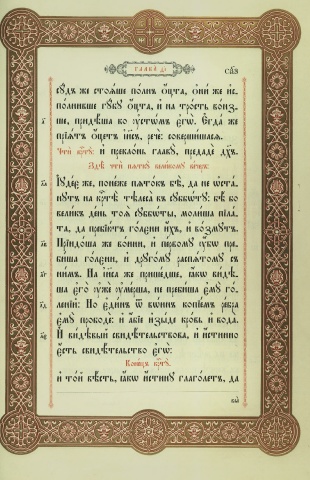 Глава ді
сѯз
сꙋдъ же стоѧше полнъ ѻцта, ѻни же ис-
полнивше гꙋбꙋ ѻцта, и на трость вонз-
ше, придѣша ко ᲂустѡмъ єгѡ̀. Єгда же
прїѧтъ ѻцетъ і҆и҃съ, рече: совершишасѧ.
и преклонь главꙋ, предаде дх҃ъ.
І҆ꙋдеє же, понеже пѧтокъ бѣ, да не ѡста-
нꙋтъ на крⷭ҇тѣ тѣлеса въ сꙋббѡтꙋ: бѣ бо
великъ день тоѧ сꙋббѡты, молиша пїла-
та, да пребїютъ голєни ихъ, и возмꙋтъ.
Прїидоша же воини, и первомꙋ ᲂубѡ пре-
биша голєни, и дрꙋгомꙋ распѧтомꙋ съ
нимъ. На і҆и҃са же пришедше, ꙗкѡ видѣ-
ша єгò ᲂуже ᲂумерша, не пребиша ємꙋ го-
лєнїй: Но єдинъ ѿ воинъ копїемъ ребра
ємꙋ прободе: и абїе изыде кровь и вода.
И видѣвый свидѣтельствова, и истинно
єсть свидѣтельство єгѡ̀:
Конецъ
и той вѣсть, ꙗкѡ истинꙋ глаголетъ, да